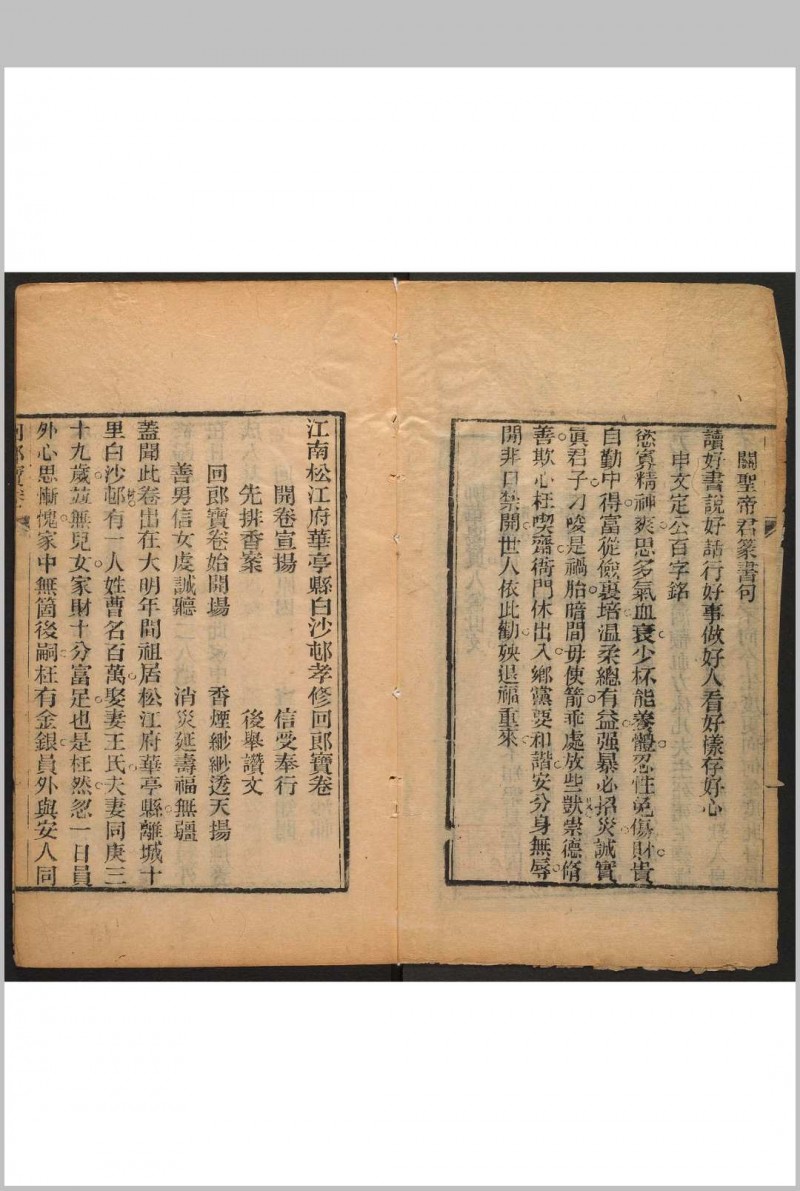 關聖帝君篆書句
讀好書說好話行好事做好人看好樣存好心
申文定公百字銘
慾寡精神爽思多氣血衰少杯能養體忍性免傷財貴
自勤中得富從儉裏培溫柔總有益强暴必招災誠實
眞君子刁唆是禍胎暗間毋使箭乖處放些獃崇德脩
善欺心枉喫齋衙門休出入鄉黨要和諧安分身無辱
閒非口禁開世人依此勸殃退福重來
江南松江府華亭縣白沙邨孝修回郎寶卷
開卷宣揚　信受奉行
先排香案　後舉讚文
回郎寶卷始開場　香煙緲緲透天揚
善男信女虔誠聽　消災延壽福無疆
蓋聞此卷出在大明年間祖居松江府華亭縣離城十
里白沙邨有一人姓曹名百萬娶妻王氏夫妻同庚三
十九歲並無兒女家財十分富足也是枉然忽一日員
外心思慚愧家中無箇後嗣枉有金銀員外與安人同